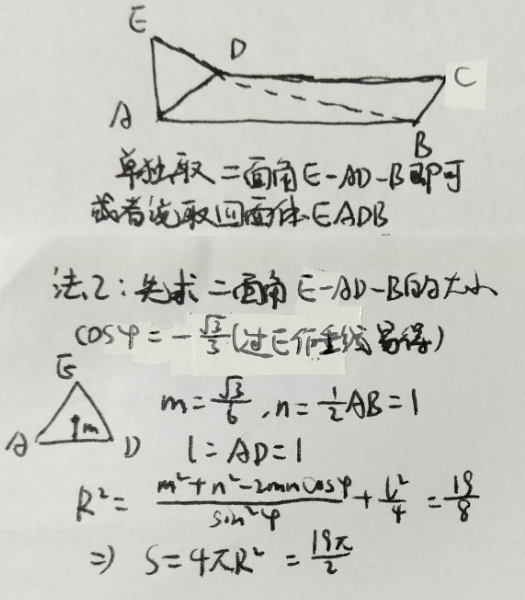 E
D
C
A
B
单独取二面角E-AD-B即可
或者说取四面体EADB
法2:先求二面角E-AD-B的大小
cosφ=-√3/3(过E作垂线易得)
E
m=√3/6,n=1/2AB=1
A m D
l=AD=1
R²=(m²+n²-2mncosφ)/sin²φ+l²/4=19/8
⇒ S=4πR²=19π/2